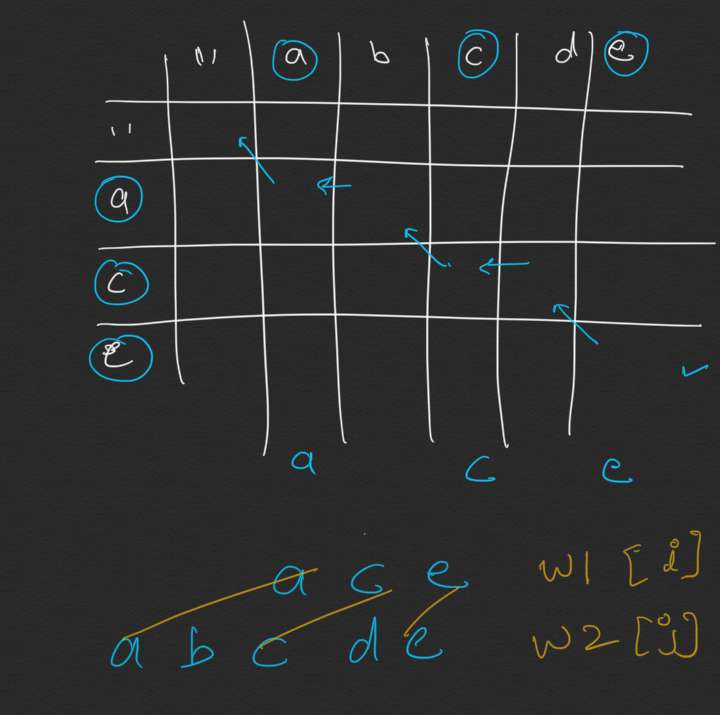 "" a b c d e
""
a
c
e
a c e
a c e w1 [i]
a b c d e w2 [j]